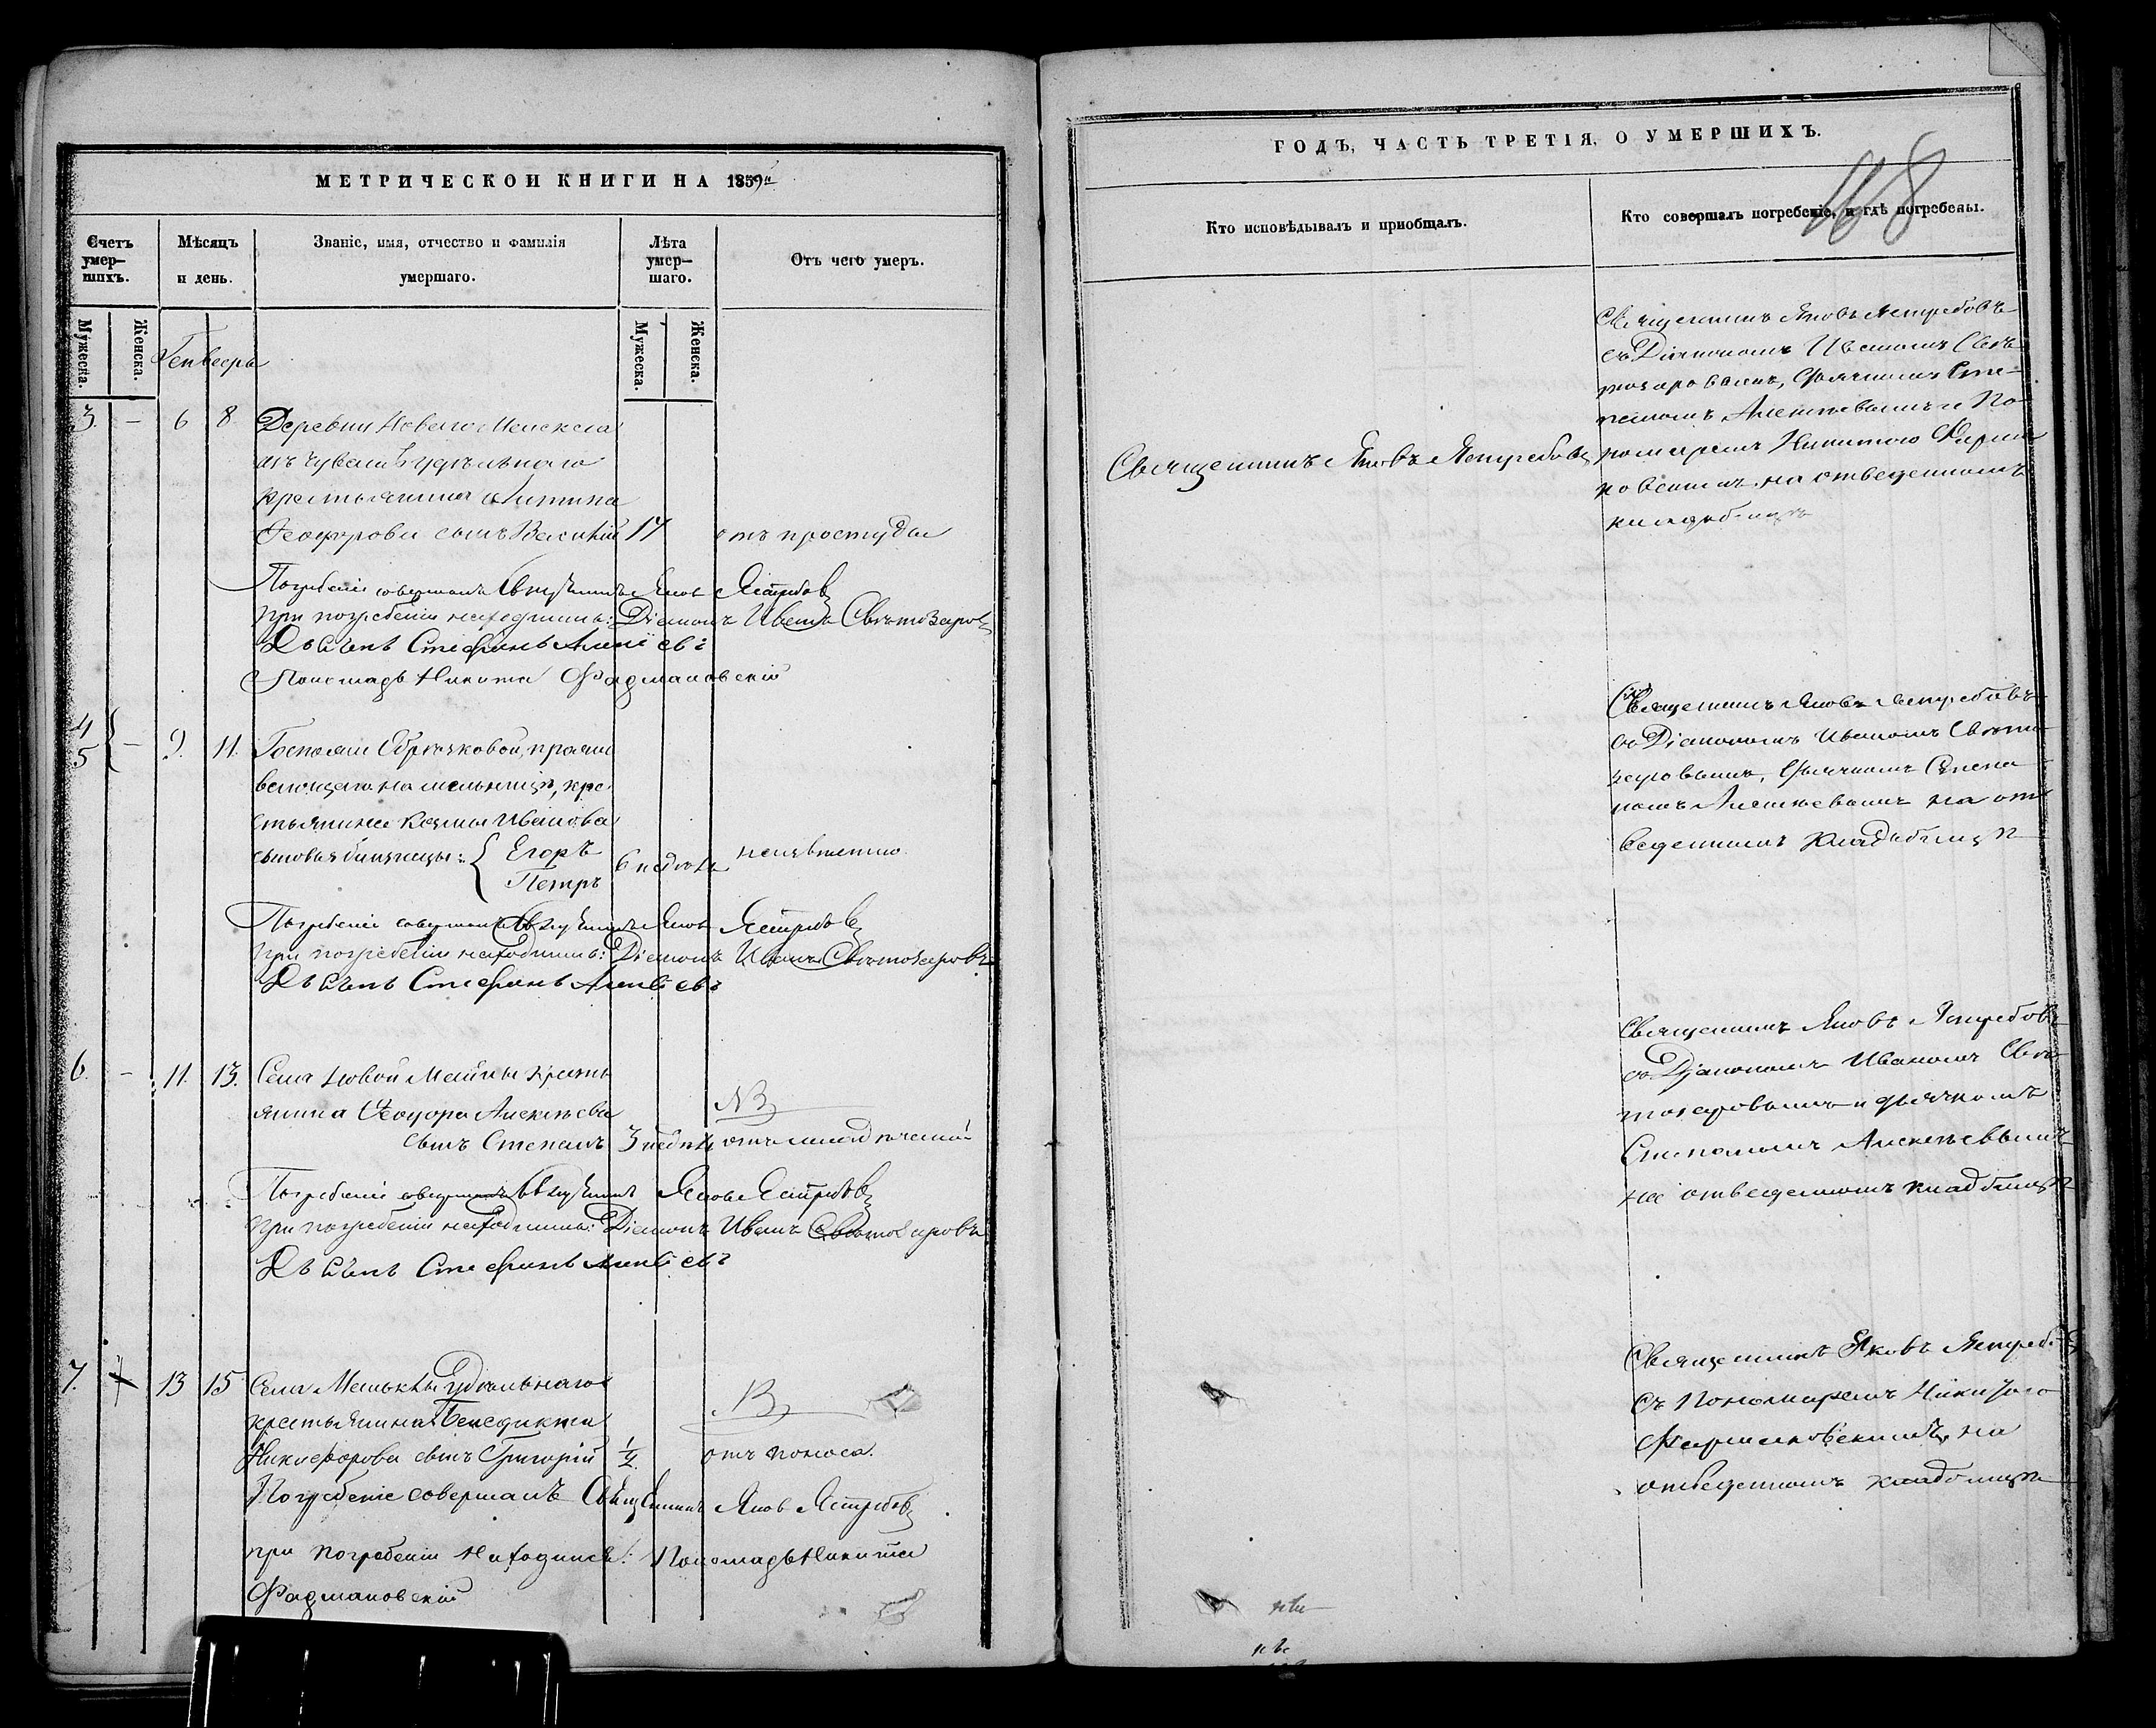 МЕТРИЧЕСКОЙ КНИГИ НА 1859й
Счетъ умер-шихъ.
Мѣсяцъ и день.
Званіе, имя, отчество и фамилія умершаго.
Лѣта умер-шаго.
Отъ чего умеръ.
Мужеска.
Женска.
Генваръ
Мужеска.
Женска.
3. — 6 8 Деревни Новаго
удѣльнаго
крестьянина Антипа
Ѳеодорова сынъ Василій 17 отъ простуды
Погребеніе совершалъ Священникъ Яковъ Ястребовъ
при погребеніи находились: Діаконъ Иванъ Святозаровъ
Дьячекъ Стефанъ Алексіевъ
Пономарь Никита Фармаковскій
4
5 — 9. 11. Госпожи прожи
вающаго на мельницѣ, кре
стьянина Козмы Иванова
сыновья близнецы: Егоръ
Петръ
6 недѣль неизвѣстно.
Погребеніе совершалъ Священникъ Яковъ Ястребовъ
при погребеніи находились: Діаконъ Иванъ Святозаровъ
Дьячекъ Стефанъ Алексіевъ
6. — 11. 13. Села Новой Майны кресть
янина Ѳеодора Алексѣева
NB
сынъ Степанъ 3 недѣль отъ младенческой
Погребеніе совершалъ Священникъ Яковъ Ястребовъ
при погребеніи находились: Діаконъ Иванъ Святозаровъ
Дьячекъ Стефанъ Алексіевъ
7. 13 15 Села Удѣльнаго
крестьянина Бенедикта
Никифорова сынъ Григорій ½ отъ поноса.
Погребеніе совершалъ Священникъ Яковъ Ястребовъ
при погребеніи находились: Пономарь Никита
Фармаковскій
ГОДЪ, ЧАСТЬ ТРЕТІЯ, О УМЕРШИХЪ.
168
Кто исповѣдывалъ и пріобщалъ.
Кто совершалъ погребеніе, и гдѣ погребены.
Священникъ Яковъ Ястребовъ
Священникъ Яковъ Ястребовъ
съ Діакономъ Иваномъ Свя
тозаровымъ, Дьячкомъ Сте-
паномъ Алексѣевымъ и По
номаремъ Никитою Фарма
ковскимъ, на отведенномъ
кладбищѣ
Священникъ Яковъ Ястребовъ
со Діакономъ Иваномъ Свято
заровымъ, Дьячкомъ Степа
номъ Алексѣевымъ на от
веденномъ кладбищѣ
Священникъ Яковъ Ястребовъ
со Діакономъ Иваномъ Свя
тозаровымъ и дьячкомъ
Степаномъ Алексѣевымъ
на отведенномъ кладбищѣ
Священникъ Яковъ Ястребовъ
съ Пономаремъ Никитою
Фармаковскимъ, на
отведенномъ кладбищѣ